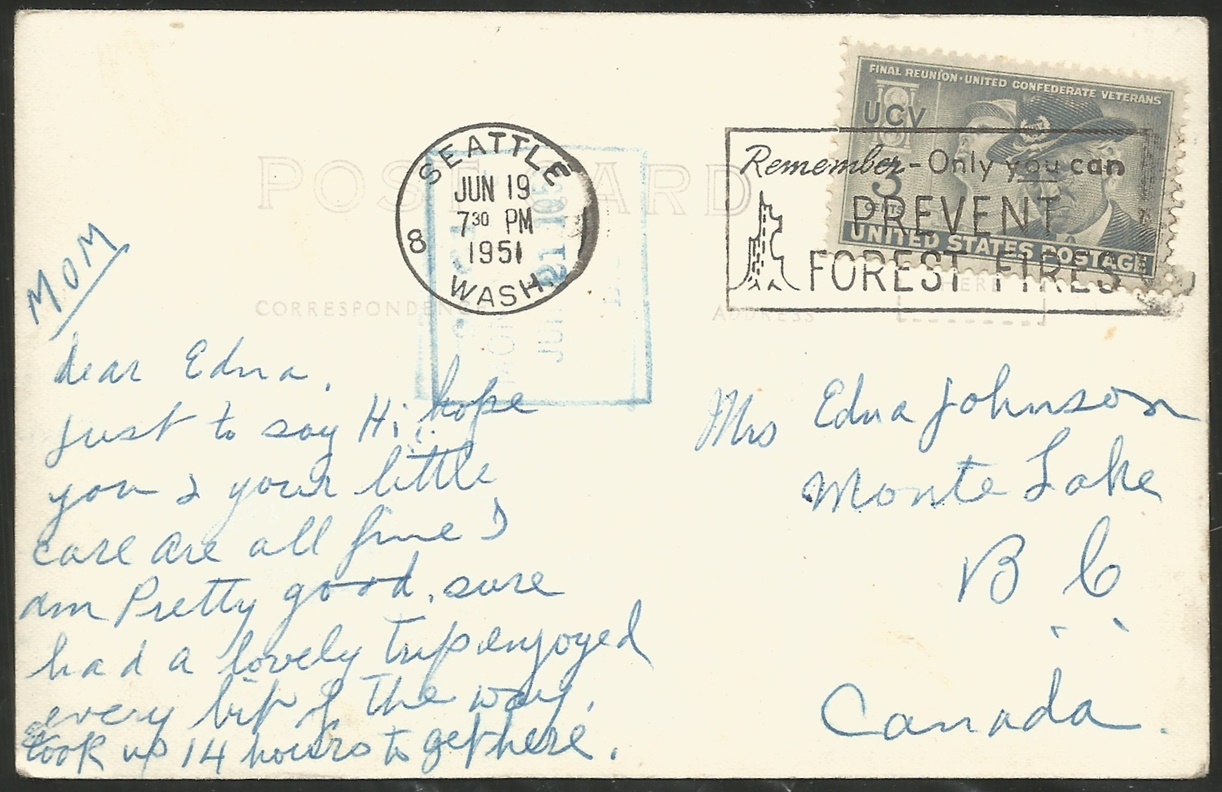 FINAL REUNION · UNITED CONFEDERATE VETERANS
UCV
3
UNITED STATES POSTAGE
Remember - Only you can
PREVENT
FOREST FIRES
SEATTLE
JUN 19
7 30 PM
1951
WASH.
8
POST CARD
CORRESPONDENCE
ADDRESS
HERE
MOM
dear Edna,
just to say Hi, hope
you & your little
care are all fine I
am Pretty good, sure
had a lovely trip enjoyed
every bit of the way,
took us 14 hours to get here.
Mrs Edna Johnson
Monte Lake
B C
Canada.